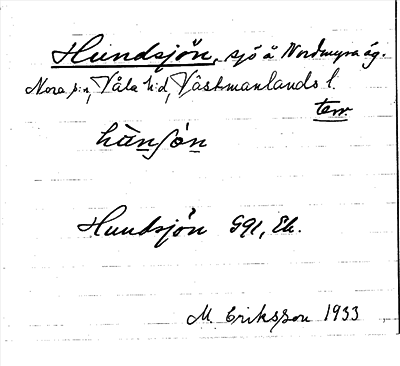 Hundsjön, sjö å Nordmyra äg.
Nora sn, Våla hd, Västmanlands l.
terr.
hùnʃö́n
Hundsjön G91, Ek.
M. Eriksson 1933